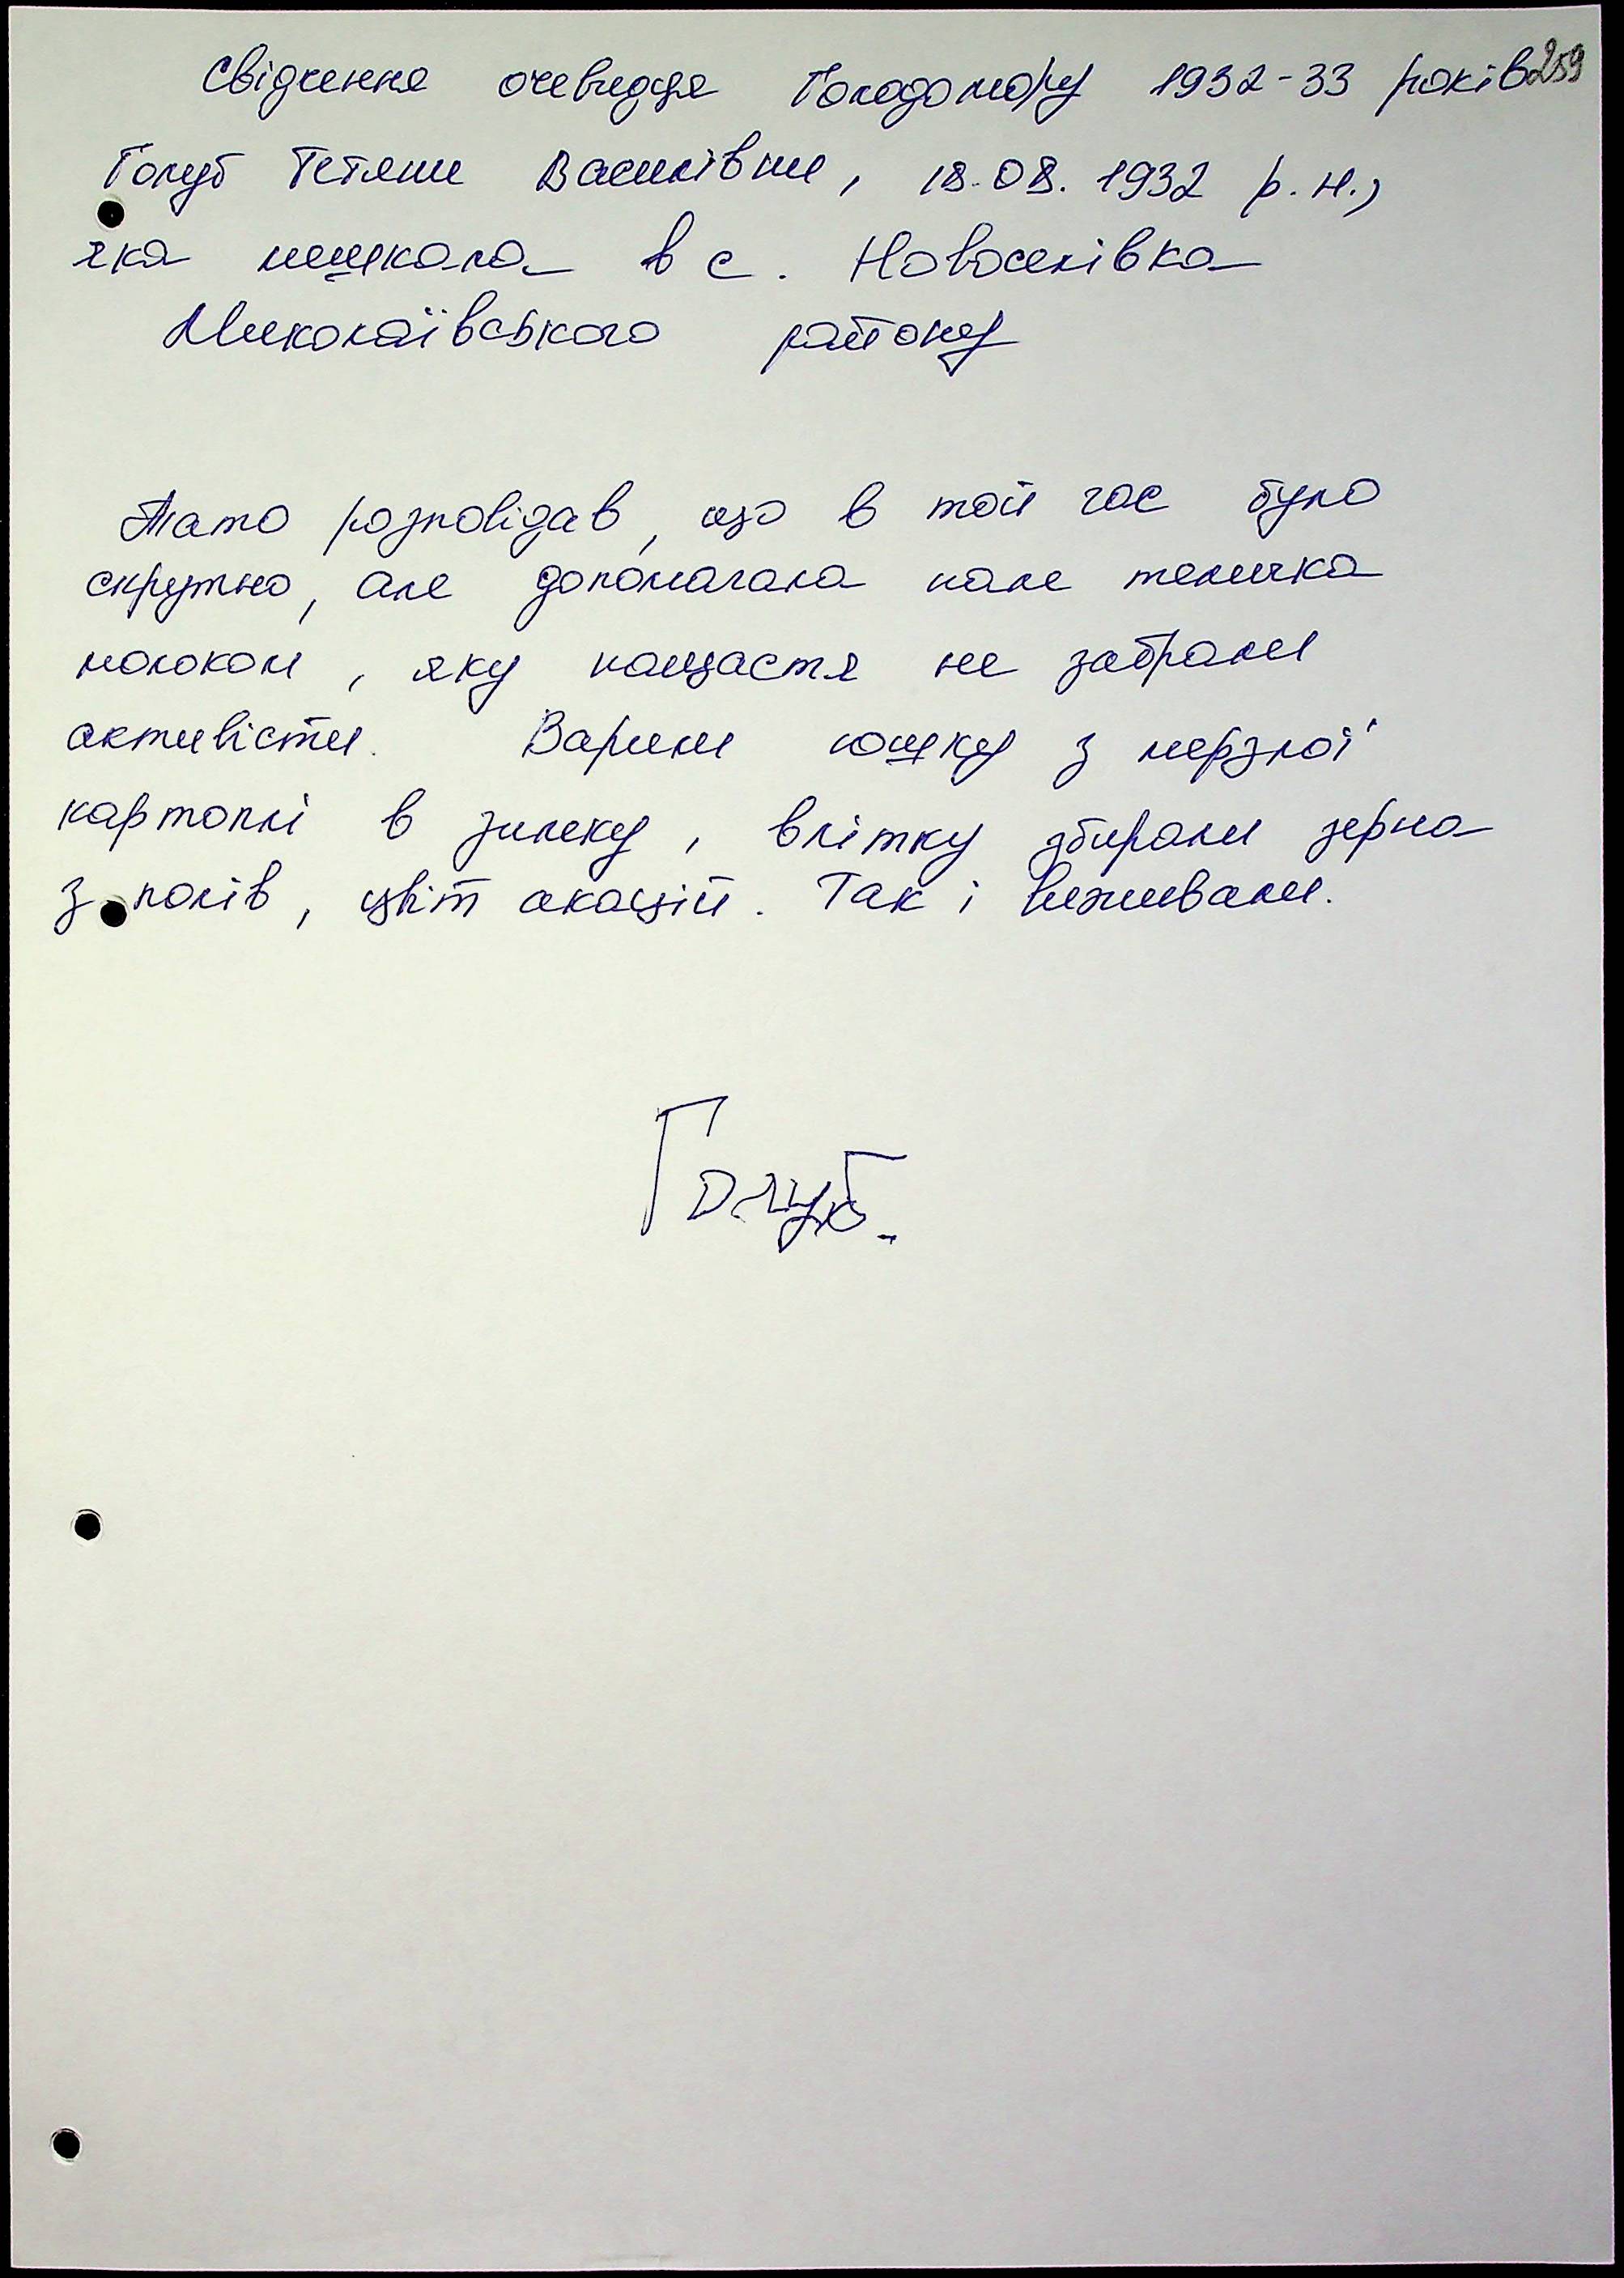 Свідчення очевидця Голодомору 1932-33 років 259
Голуб Тетяни Василівни, 18.08.1932 р.н.,
яка мешкала в с. Новоселівка
Миколаївського району
Тато розповідав, що в той час було
скрутно, але допомагала нам теличка
молоком, яку нащастя не забрали
активісти. Варили юшку з мерзлої
картоплі в зимку, влітку збирали зерна
з полів, цвіт акацій. Так і виживали.
Голуб.